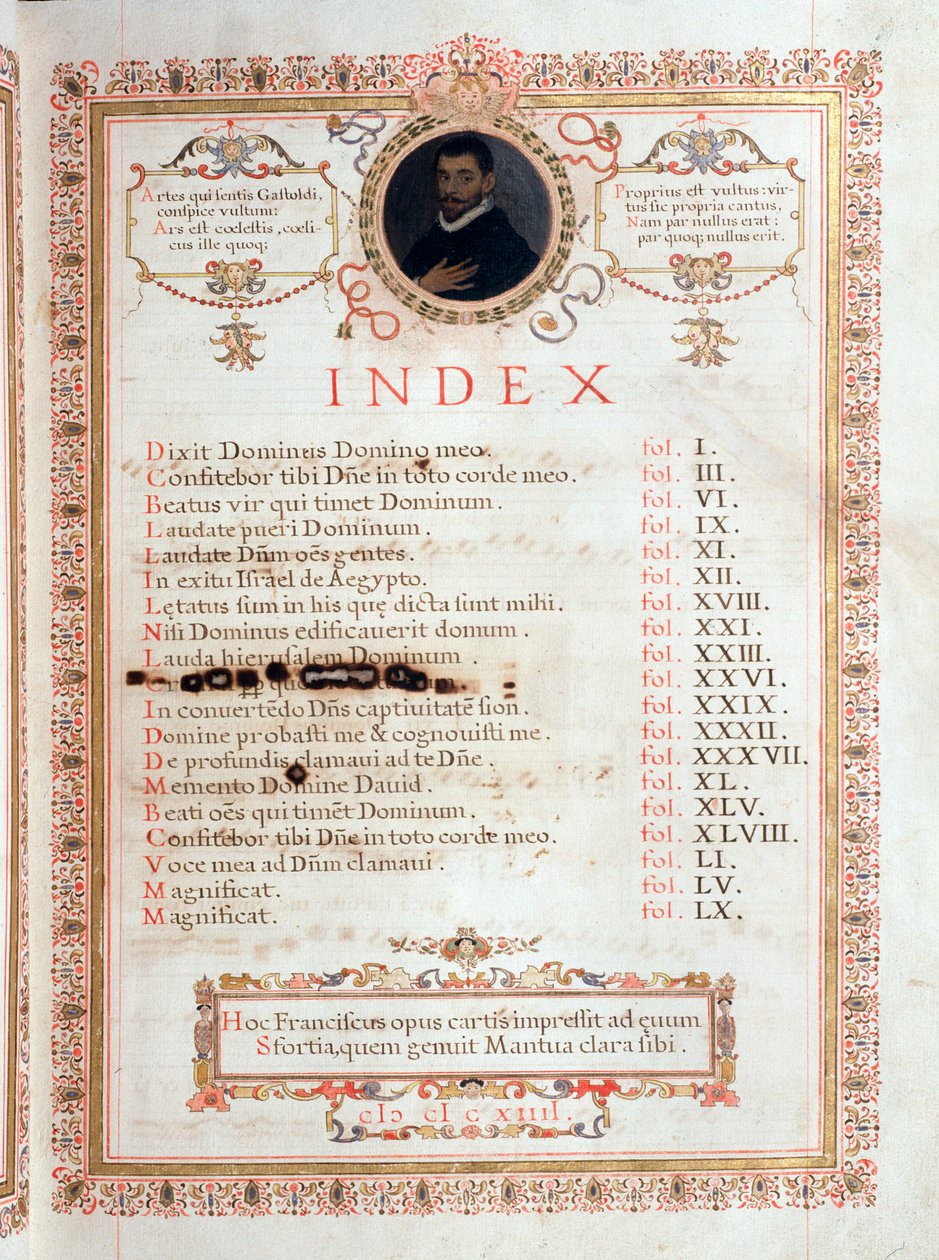 Artes qui sentis Gastoldi,
conspice vultum:
Ars est cœlestis, cœli-
cus ille quoq;
Proprius est vultus: vir-
tus sic propria cantus,
Nam par nullus erat:
par quoq; nullus erit.
INDEX
Dixit Dominus Domino meo. fol. I.
Confitebor tibi Dñe in toto corde meo. fol. III.
Beatus vir qui timet Dominum. fol. VI.
Laudate pueri Dominum. fol. IX.
Laudate Dñm oẽs gentes. fol. XI.
In exitu Israel de Aegypto. fol. XII.
Lętatus sum in his quę dicta sunt mihi. fol. XVIII.
Nisi Dominus edificauerit domum. fol. XXI.
Lauda hierusalem Dominum. fol. XXIII.
fol. XXVI.
In conuertẽdo Dñs captiuitatẽ sion. fol. XXIX.
Domine probasti me & cognouisti me. fol. XXXII.
De profundis clamaui ad te Dñe. fol. XXXVII.
Memento Domine Dauid. fol. XL.
Beati oẽs qui timẽt Dominum. fol. XLV.
Confitebor tibi Dñe in toto corde meo. fol. XLVIII.
Voce mea ad Dñm clamaui. fol. LI.
Magnificat. fol. LV.
Magnificat. fol. LX.
Hoc Franciscus opus cartis impressit ad ęuum
Sfortia, quem genuit Mantua clara sibi.
cIɔ cI c xIIII.